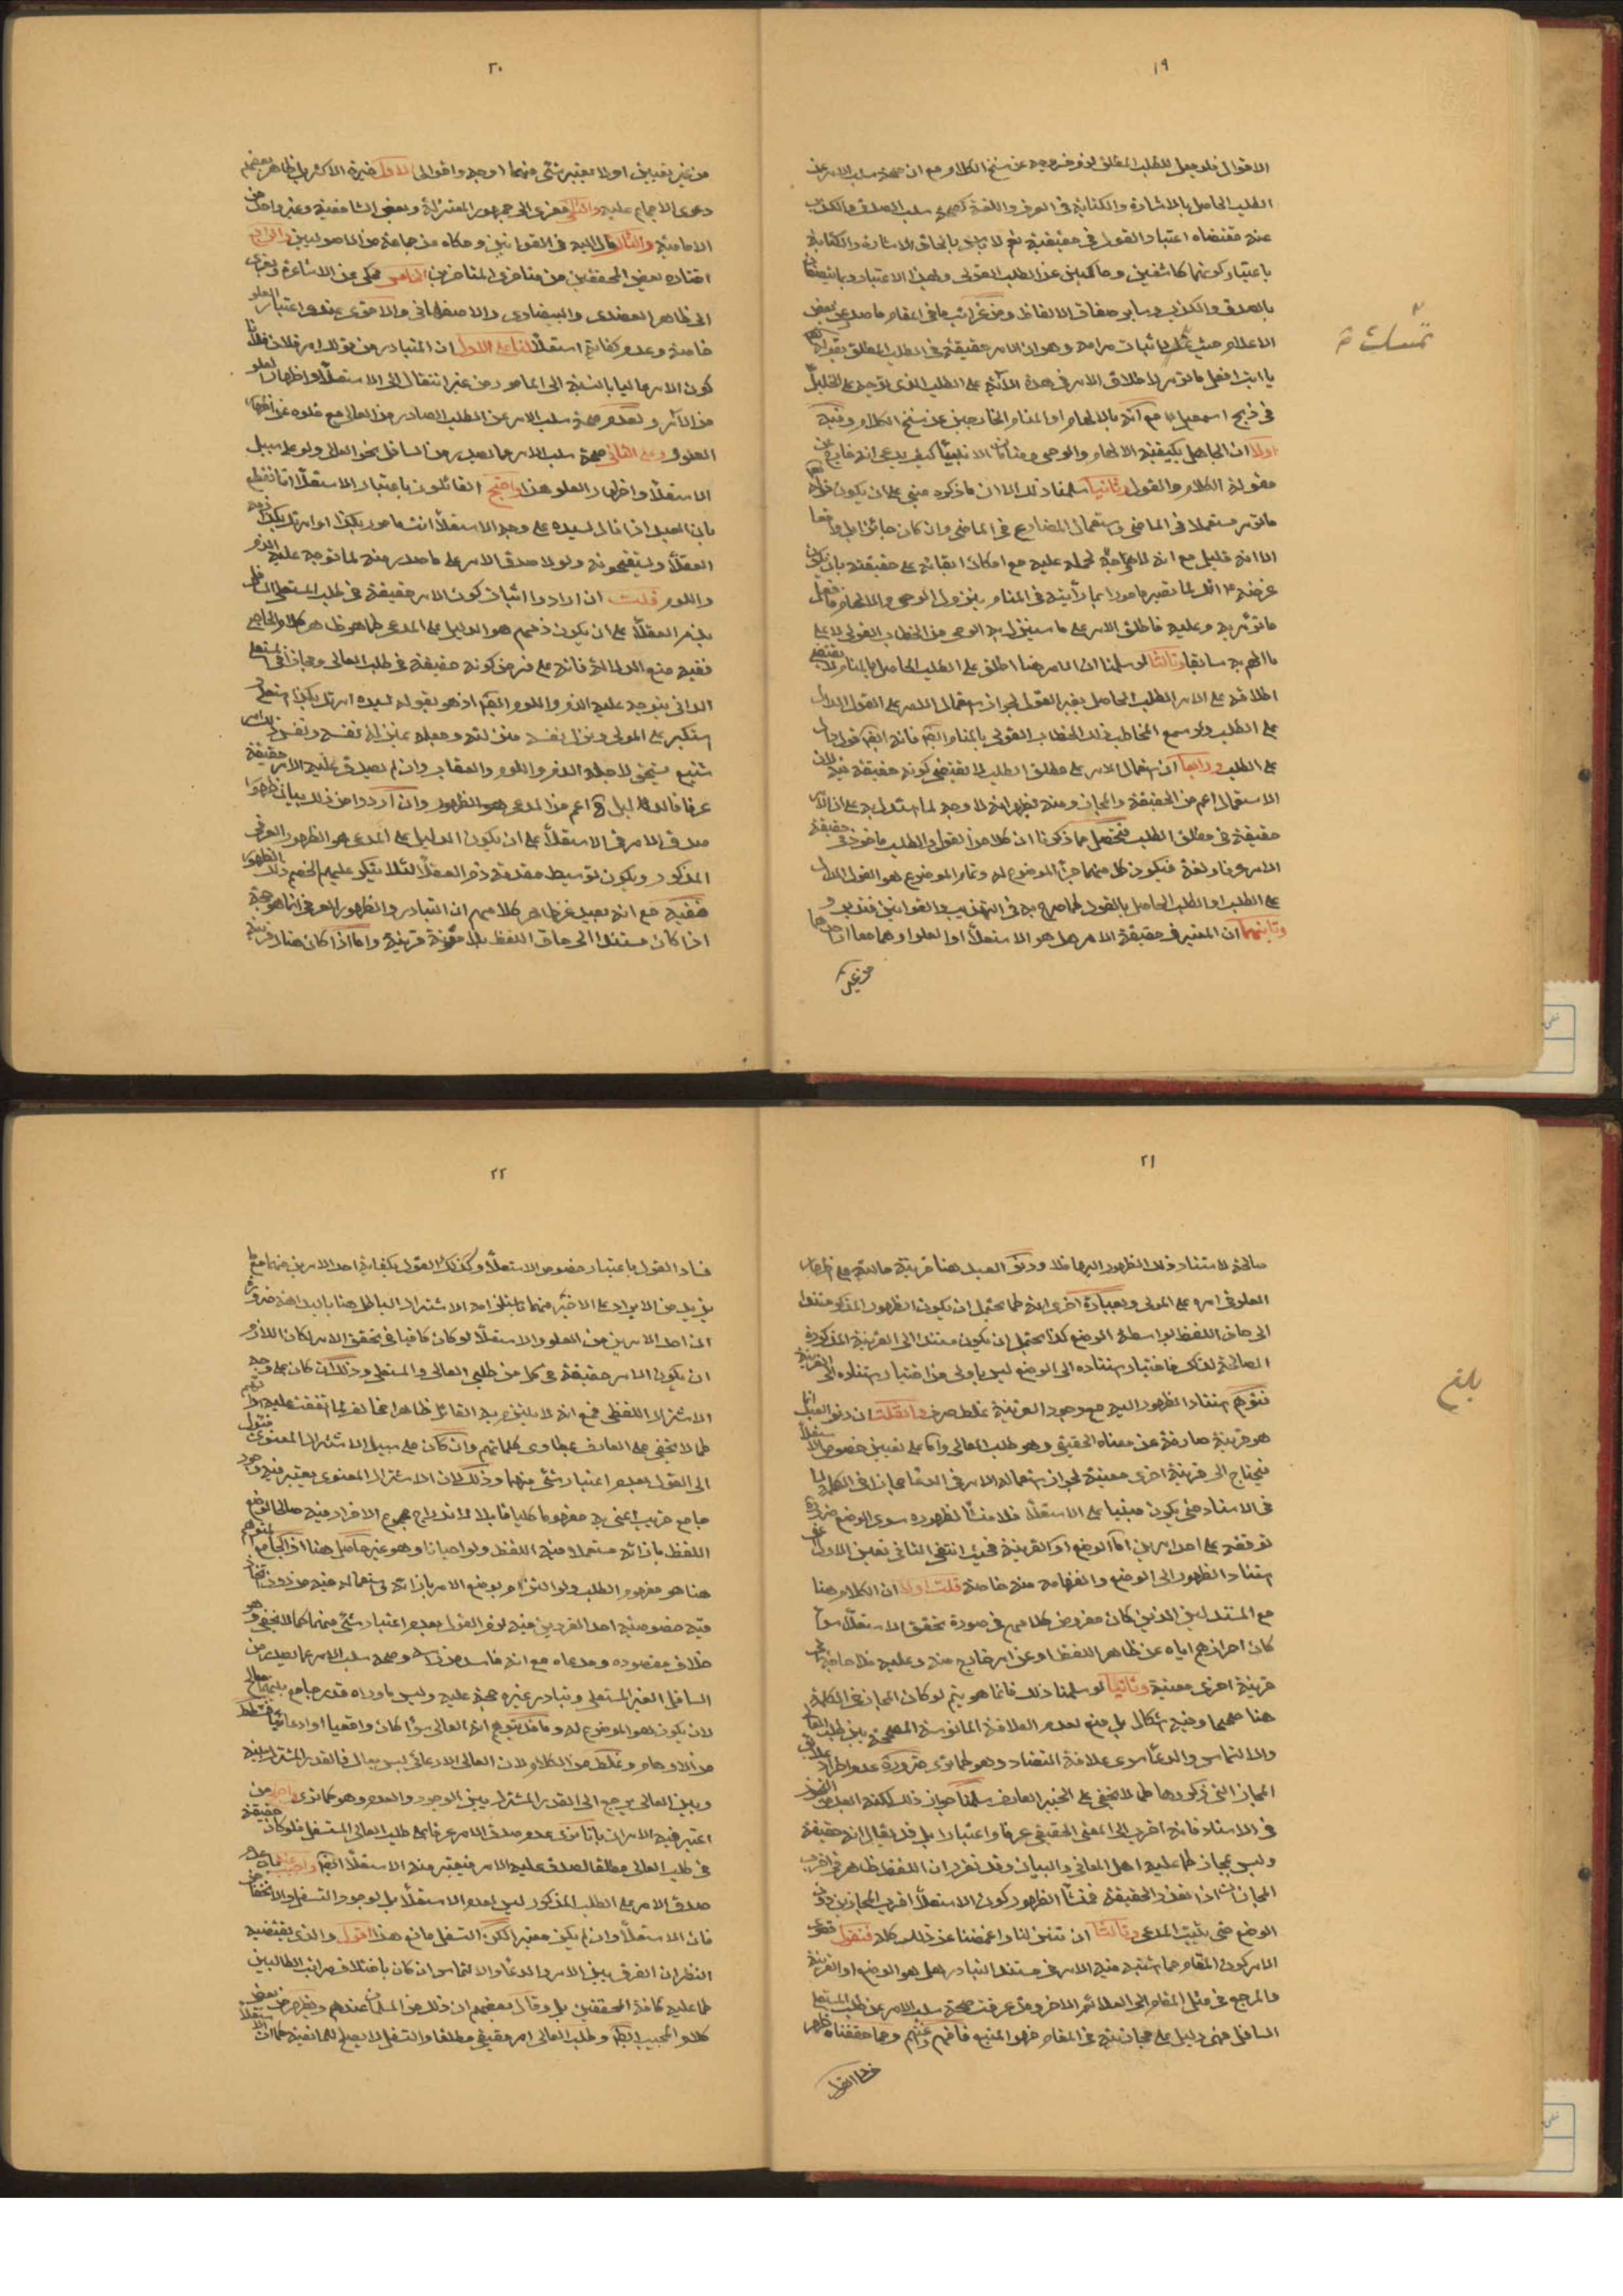 ١٩
الاقوال فلو جعل للطلب المطلق لزم خروجه عن سنخ الكلام مع ان صحة سلب الامر عن
الطلب الحاصل بالاشارة والكتابة فى العرف واللغة كصحة سلب الصدق والكذب
عنه مقتضاه اعتبار القول فى حقيقته نعم لا باس بالحاق الاشارة والكتابة
باعتبار كونهما كاشفين وحاكيين عن الطلب القولى وبهذا الاعتبار ربما يتصفان
بالصدق والكذب وساير صفات الالفاظ ومن غرائب ما فى المقام ما صدر عن بعض
الاعلام حيث تمسك باثبات مرامه وهو ان الامر حقيقة فى الطلب المطلق بقوله تعالى
يا ابت افعل ما تؤمر لاطلاق الامر فى هذه الآية على الطلب الذى توجه على الخليل
فى ذبح اسمعيل مع انه بالالهام او المنام الخارجين عن سنخ الكلام وفيه
اولا ان الجاهل بكيفية الالهام والوحى ومنامات الانبياء كيف يدعى انه خارج عن
مقولة الكلام والقول وثانيا سلمنا ذلك الا ان ما ذكره مبنى على ان يكون قوله تعالى
ما تؤمر مستعملا فى الماضى واستعمال المضارع فى الماضى وان كان جائزا بل واقعا
الا انه قليل مع انه لا حاجة لحمله عليه مع امكان ابقائه على حقيقته بان يكون
غرضه انك لما تصير مامورا بما رأيته فى المنام بنزول الوحى والالهام فافعل
ما تؤمر به وعليه فاطلق الامر على ما سينزل به الوحى من الخطاب القولى لا على
ما الهم به سابقا وثالثا لو سلمنا ان الامر هنا اطلق على الطلب الحاصل بالمنام لا يقتضى
اطلاقه على الامر الطلب الحاصل بغير القول لجواز استعمال الامر على القول الدال
على الطلب ولو سمع المخاطب ذلك الخطاب القولى بالمنام ايضا فانه ايضا قول دال
على الطلب ورابعا ان استعمال الامر على مطلق الطلب لا يقتضى كونه حقيقة فيه لان
الاستعمال اعم من الحقيقة والمجاز ومنه يظهر انه لا وجه لما استدل به على ان الامر
حقيقة فى مطلق الطلب فتحصل مما ذكرنا ان كلا من القول والطلب ماخوذ فى حقيقة
الامر عرفا ولغة فيكون كل منهما جزء الموضوع له وتمام الموضوع هو القول الدال
على الطلب او الطلب الحاصل بالقول كما صرح به فى التهذيب والقوانين فتدبر و
وثانيهما ان المعتبر فى حقيقة الامر هل هو الاستعلاء او العلو او هما معا او احدهما
من غير
٢٠
من غير تعيين او لا يعتبر شئ منهما اوجه واقوال الاول خيرة الاكثر بل ظاهر بعضهم
دعوى الاجماع عليه والثانى معزى الى جمهور المعتزلة وبعض الشافعية وغير واحد من
الامامية والثالث مال اليه فى القوانين وحكاه عن جماعة من الاصوليين والرابع
اختاره بعض المحققين من متاخرى المتاخرين الخامس محكى عن الاشاعرة ويعزى
الى ظاهر العضدى والبيضاوى والاصفهانى والاقوى عندى اعتبار العلو
خاصة وعدم كفاية الاستعلاء لنا على الاول ان المتبادر من قولك امر فلان فلانا
كون الامر عاليا بالنسبة الى المامور من غير انتقال الى الاستعلاء واظهار العلو
من الآمر ولعدم صحة سلب الامر عن الطلب الصادر من العالى مع خلوه عن اظهار
العلو وعلى الثانى صحة سلب الامر عما يصدر من السافل نحو العالى ولو على سبيل
الاستعلاء واظهار العلو هذا واحتج القائلون باعتبار الاستعلاء
بان العبد اذا قال لسيده على وجه الاستعلاء انت مامور بكذا او امرتك بكذا ذمه
العقلاء ويستقبحونه ولولا صدق الامر على ما صدر منه لما توجه عليه الذم
واللوم قلت ان ارادوا اثبات كون الامر حقيقة فى طلب المستعلى السافل
بذم العقلاء على ان يكون ذمهم هو الدليل على المدعى كما هو ظاهر كلام الحاجبى
ففيه منع الدلالة فانه على فرض كونه حقيقة فى طلب العالى ومجازا فى المستعلى
الدانى يتوجه عليه الذم واللوم ايضا اذ هو بقوله لسيده امرتك بكذا استعلى
استكبر على المولى ونزل نفسه منزلته وجعله بمنزلة نفسه ونفس ذلك امر
شنيع يستحق لاجله الذم واللوم والعقاب وان لم يصدق عليه الامر حقيقة
عرفا فالدليل اعم من المدعى وان ارادوا من ذلك بيان ظهور
صدق الامر فى الاستعلاء على ان يكون الدليل على المدعى هو الظهور العرفى
المذكور ويكون توسيط مقدمة ذم العقلاء لئلا ينكر عليهم الخصم ذلك الظهور
ففيه مع انه بعيد عن ظاهر كلامهم ان التبادر والظهور العرفى انما هو حجة
اذا كان مستندا الى حاق اللفظ بلا مؤنة قرينة واما اذا كان هناك قرينة
٢١
صالحة لاستناد ذلك الظهور اليها فلا ودنو العبد هنا قرينة حالية على اظهار
العلو فى امره على المولى وبعبارة اخرى انه كما يحتمل ان يكون الظهور المذكور مستندا
الى حاق اللفظ بواسطة الوضع كذا يحتمل ان يكون مستندا الى القرينة المذكورة
الصالحة لذلك فاختيار استناده الى الوضع ليس باولى من اختيار استناده الى القرينة
فتوهم استناد الظهور اليه مع وجود القرينة غلط صرف فان قلت ان دنو العبد انما
هو قرينة صارفة عن معناه الحقيقى وهو طلب العالى واما على تعيين خصوص الاستعلاء
فيحتاج الى قرينة اخرى معينة لجواز استعماله الامر فى الدعاء مجازا فى الكلمة او
فى الاسناد حتى يكون مبنيا على الاستعلاء فلا منشأ لظهوره سوى الوضع ضرورة
توقفه على احد امرين اما الوضع او القرينة فحيث انتفى الثانى تعين الاول اعنى
استناد الظهور الى الوضع وانفهامه منه خاصة قلت اولا ان الكلام هنا
مع المستدلين الذين كان مفروض كلامهم فى صورة تحقق الاستعلاء سواء
كان احرازهم اياه عن ظاهر اللفظ او عن امر خارج منه وعليه فلا حاجة الى
قرينة اخرى معينة وثانيا لو سلمنا ذلك فانما هو يتم لو كان المجاز فى الكلمة
هنا صحيحا وفيه اشكال بل منع لعدم العلاقة المانوسة المصححة بين طلب العالى
والالتماس والدعاء سوى علاقة التضاد وهو كما ترى ضرورة عدم اطراد علائق
المجاز التى ذكروها كما لا يخفى على الخبير العارف سلمنا جواز ذلك لكنه ابعد من التصرف
فى الاسناد فانه اقرب الى المعنى الحقيقى عرفا واعتبارا بل قد يقال انه حقيقة
وليس بمجاز كما عليه اهل المعانى والبيان وقد تقرر ان اللفظ ظاهر فى اقرب
المجازات اذا تعذر الحقيقة فمنشأ الظهور كون الاستعلاء اقرب المجازين دون
الوضع حتى يثبت المدعى وثالثا ان تنزلنا واغمضنا عن ذلك كله فنقول قصوى
الامر كون المقام مما اشتبه فيه الامر فى مستند التبادر هل هو الوضع او القرينة
والمرجع فى مثل المقام الى العلائم الاخر وقد عرفت صحة سلب الامر عن طلب المستعلى
السافل فهى دليل على مجازيته فى المقام فهو المتبع فافهم واغتنم ومما حققناه ظهر
فساد القول
بلغ
٢٢
فساد القول باعتبار خصوص الاستعلاء وكذلك القول بكفاية احد الامرين منهما مع ما
يزيد من الايراد على الاخير منهما باستلزامه الاشتراك الباطل هنا بالبداهة ضرورة
ان احد الامرين من العلو والاستعلاء لو كان كافيا فى تحقق الامر لكان اللازم
ان يكون الامر حقيقة فى كل من طلبى العالى والمستعلى وذلك ان كان على وجه
الاشتراك اللفظى فمع انه لا يلتزم به القائل ظاهرا مخالف لما اتفقت عليه آراؤهم
كما لا يخفى على العارف بمطاوى كلماتهم وان كان على سبيل الاشتراك المعنوى فيؤل
الى القول بعدم اعتبار شئ منهما وذلك لان الاشتراك المعنوى يعتبر فيه وجود
جامع قريب اعنى به مفهوما كليا قابلا لاندراج مجموع الافراد فيه صالحا لوضع
اللفظ بازائه مستعملا فيه اللفظ ولو احيانا وهو غير حاصل هنا اذ الجامع
هنا هو مفهوم الطلب ولو التزم بوضع الامر بازائه واستعماله فيه من دون
فيه خصوصية احد الفردين فيه لزم القول بعدم اعتبار شئ منهما كما لا يخفى وهو
خلاف مقصوده ومدعاه مع انه فاسد من اصله وصحة سلب الامر عما يصدر من
السافل الغير المستعلى وتبادر غيره حجة عليه وليس ما وراه قدر جامع بينهما
لان يكون هو الموضوع له وما قد يتوهم انه العالى سواء كان واقعيا او ادعائيا فغلط
من الاوهام وغلط من الكلام لان العالى الادعائى ليس بعال فالقدر المشترك بينه
وبين العالى يرجع الى القدر المشترك بين الوجود والعدم وهو كما ترى واحتج من
اعتبر فيه الامران بانا نرى عدم صدق الامر عرفا على طلب العالى المستفل فلو كان حقيقة
فى طلب العالى مطلقا لصدق عليه الامر فيعتبر منه الاستعلاء ايضا واجيب عنه بان عدم
صدق الامر على الطلب المذكور ليس لعدم الاستعلاء بل لوجود التسفل والانخفاض
فان الاستعلاء وان لم يكن معتبرا لكن التسفل مانع هذا اقول والذى يقتضيه
النظر ان الفرق بين الامر والدعاء والالتماس ان كان باختلاف مراتب الطالبين
كما عليه كافة المحققين بل وقال بعضهم ان ذلك من المسلمات عندهم ويظهر من بعض
كلام المجيب ايضا وطلب العالى امر حقيقى مطلقا والتسفل لا يصلح للمانعية كما ان الاستعلاء